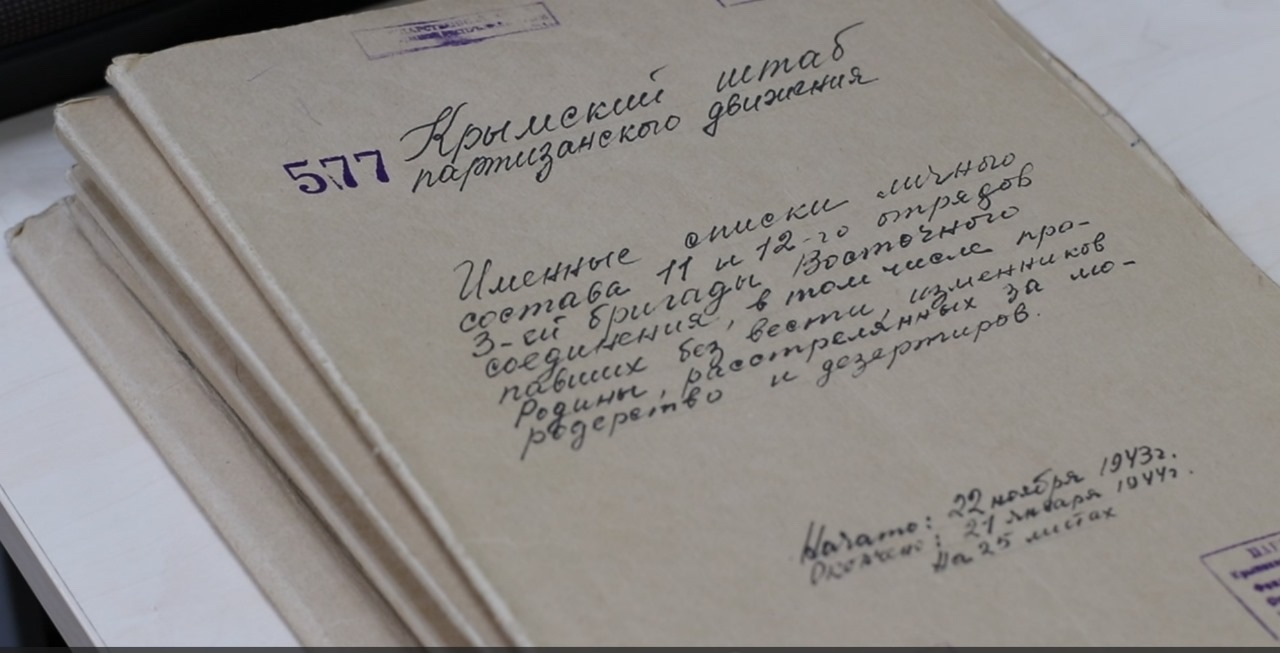 577
Крымский штаб
партизанского движения
Именные списки личного
состава 11 и 12-го отрядов
3-ей бригады Восточного
соединения, в том числе про-
павших без вести, изменников
Родины, расстрелянных за мо-
родерство и дезертиров.
Начато: 22 ноября 1943г.
Окончено: 21 января 1944г.
На 25 листах